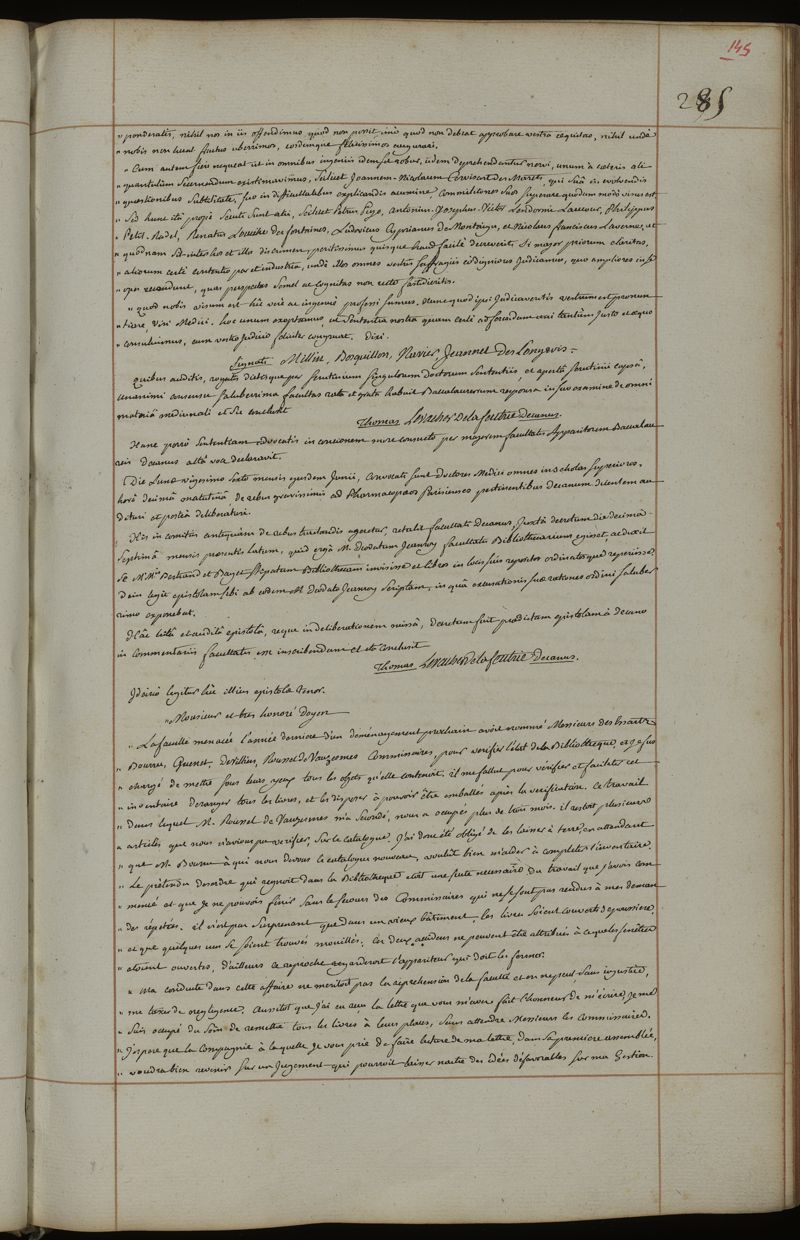 145
285
" ponderatis, nihil nos in iis offendimus quod non possit imò quod non debeat approbare vestra æquitas, nihil undè
" nobis non liceat fructus uberrimos, eosdemque felicissimos augurari.
" Cum autem fieri nequeat ut in omnibus ingeniis idem sit robur, iidem deprehendantur nervi, unum à cæteris ali
" quantulùm secernendum existimavimus, scilicet Joannem-Nicolaum Corvisart des Marets, qui suâ in evolvendis
" quæstionibus subtilitate, suo in difficultatibus explicandis acumine, commilitones suos superare quodam modo visus est
" Sed hunc ità propè secuti sunt alii, scilicet Petrus Antonius Josephus Lendormie Laucour, Philippus
" Petit Radel, Renatus des fontaines, Ludovicus Cyprianus de Montaigu, et Nicolaus franciscus Lavernue, ut
" quodnam sit inter hos et illos discrimen, peritissimus quisque haud facilè decreverit. Si major priorum claritas,
" aliorum certè eruditio par et industria, undè illos omnes vestris suffragiis eò digniores judicamus, quo ampliores in se
" opes recondunt, quas perspectas semel ac cognitas non certè fastidietis.
" quod nobis visum est hic verè ac ingenuè professi sumus. Nunc quod ipsi judicaveritis vestrum est pronun
" tiare, Viri Medici. hoc unum exoptamus, ut sententia nostra quam certè ad ferendum erai tantùm justo et æquo
" consuluimus, cum vestro judicio feliciter congruat. Dixi.
Signati Millin, Bosquillon, Navier, Jeannet Des Longrois.
Quibus auditis, rogatis dictisque per scrutinium singulorum doctorum sententiis, et apertâ scrutinii capsâ,
unanimi consensu saluberrima facultas rata et grata habuit Baccalaureorum responsa in suo examine de omni
materiâ medicinali et sic conclusit
Thomas Levacher de la feutrie Decanus.
Hanc porrò sententiam advocatis in concionem more consueto per majorem facultatis Apparitorem Baccalau
reis Decanus altâ voce declaravit.
Die Lunæ vigesimo sexto mensis ejusdem Junii, convocati sunt Doctores Medici omnes in scholas superiores
horâ decimâ matutinâ de rebus gravissimis ad Pharmacopæos Parisienses pertinentibus decanum dicentem au
dituri et posteà deliberaturi.
His in comitiis antequàm de rebus tractandis ageretur, retulit facultati Decanus, juxtà decretum die decimâ
septimâ mensis præsentis latum, quid ergà M. Deodatum Jeanroy facultatis Bibliothecarium egisset, ac dixit
se M. Mis Bertrand et Bayet stipatum Bibliothecam invisisse et libros in locis suis repositos ordinatosque reperisse.
Dein legit epistolam sibi ab eodem M. Deodato Jeanroy scriptam, in quâ excusationis suæ rationes ordini saluber
rimo exponebat.
Hâc lectâ et auditâ epistolâ, reque in deliberationem missâ, decretum fuit prædictam epistolam à Decano
in commentariis facultatis esse inscribendam et sic conclusit
Thomas Levacher de la feutrie Decanus.
Idcircò legitur hîc illius epistolæ tenor.
" Monsieur et très honoré Doyen
" La faculté menacée l'année derniere d'un déménagement prochain avoit nommé Messieurs des Essartz
" Bourru, Guenet, Devillier, Roussel de Vauzesmes Commissaires, pour verifier l'état de la Bibliothèque, et je fus
" chargé de mettre sous leurs yeux tous les objets qu'elle contenoit. il me fallut pour vérifier et faciliter cet
" inventaire déranger tous les livres, et les disposer à pouvoir être emballés après la vérification. Ce travail
" dans lequel M. Roussel de Vauzesmes m'a secondé, nous a occupés plus de trois mois. il restoit plusieurs
" articles que nous n'avions pu verifier, sur le catalogue. J'ai donc été obligé de les laisser à terre, en attendant
" que M. Bourru à qui nous devons le catalogue nouveau, voulût bien m'aider à completer l'inventaire.
" Le prétendu desordre qui regnoit dans la Bibliothèque étoit une suite necessaire du travail que j'avois com
" mencé et que je ne pouvois finir sans le secours des Commissaires qui ne se sont pas rendus à mes deman
" des répétées. il n'est pas surprenant que dans un vieux bâtiment, les livres soient couverts de poussiere,
" et que quelques uns se soient trouvés mouillés. Ces deux accidens ne peuvent être attribués à ce que les fenêtres
" etoient ouvertes, d'ailleurs ce reproche regarderoit l'appariteur qui doit les fermer.
" Ma conduite dans cette affaire ne meritoit pas la reprehension de la faculté et on ne peut, sans injustice,
" me taxer de negligence. Aussitot que j'ai eu reçu la lettre que vous m'avez fait l'honneur de m'écrire, je me
" suis occupé du soin de remettre tous les livres à leurs places, sans attendre Messieurs les Commissaires.
" J'espere que la Compagnie à laquelle je vous prie de faire lecture de ma lettre, dans sa premiere assemblée,
" voudra bien revenir sur un jugement qui pourroit laisser naître des idées défavorables sur ma gestion.